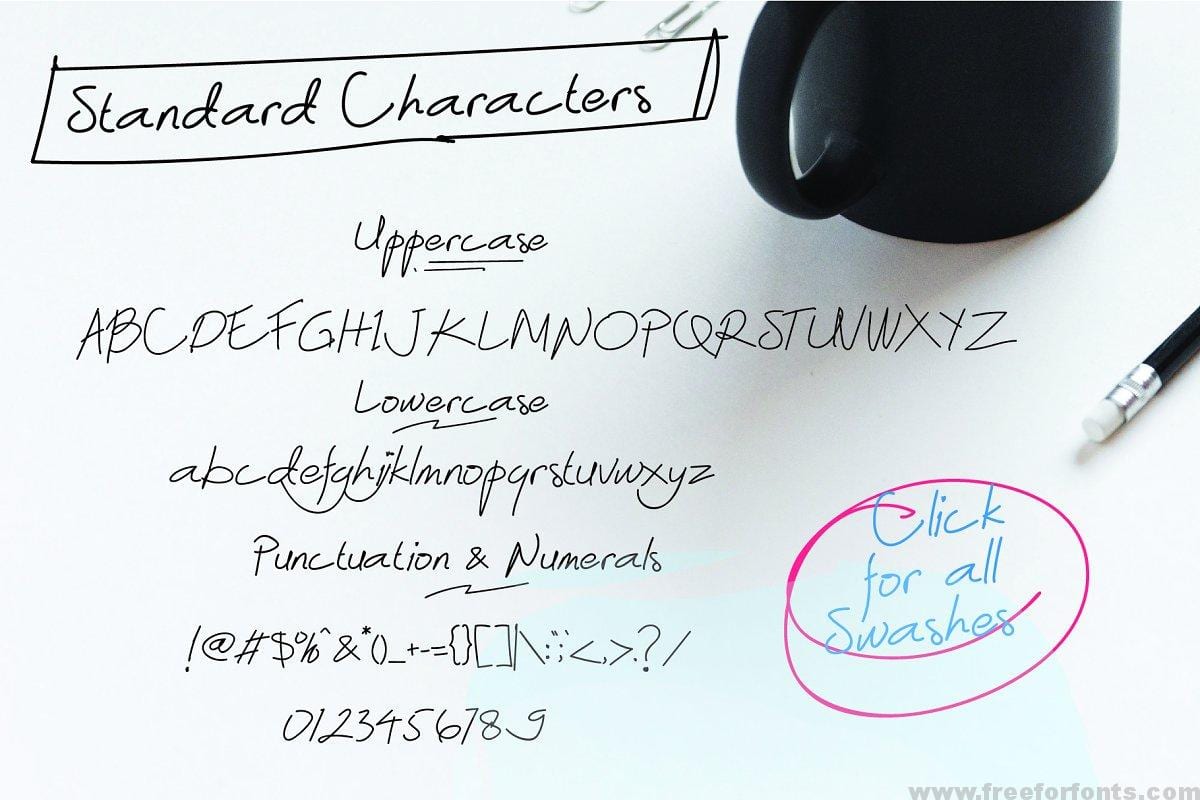 Standard Characters
Uppercase
ABCDEFGHIJKLMNOPQRSTUVWXYZ
Lowercase
abcdefghijklmnopqrstuvwxyz
Punctuation & Numerals
!@#$%^&*()_+-={}[]|\:;"'<,>.?/
0123456789
Click
for all
Swashes
www.freeforfonts.com